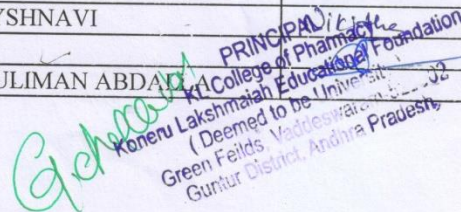 YSHNAVI
ULIMAN ABDADLA
PRINCIPAL
KL College of Pharmacy
Koneru Lakshmaiah Educational Foundation
(Deemed to be University)
Green Feilds, Vaddeswaram 02
Guntur District, Andhra Pradesh,